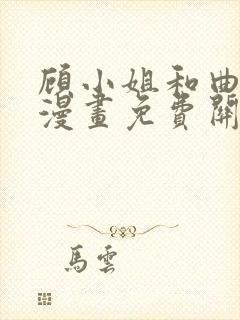 顾小姐和曲
漫畫免費開
馬雲